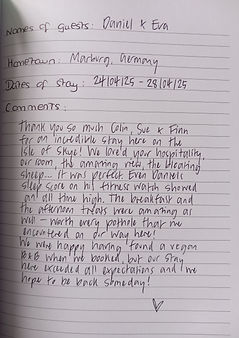 Names of Guests: Daniel & Eva
Hometown: Marburg, Germany
Dates of Stay: 24/04/25 - 28/04/25
Comments:
Thank you so much Colin, Sue & Finn
for an incredible stay here on the
Isle of Skye! We loved your hospitality,
our room, the amazing view, the bleating
sheep... it was perfect. Even Daniel's
sleep score on his fitness watch showed
an all time high. The breakfast and
the afternoon treats were amazing as
well - worth every pothole that we
encountered on our way here!
We were happy having found a vegan
B&B when we booked, but our stay
here exceeded all expectations and we
hope to be back someday!